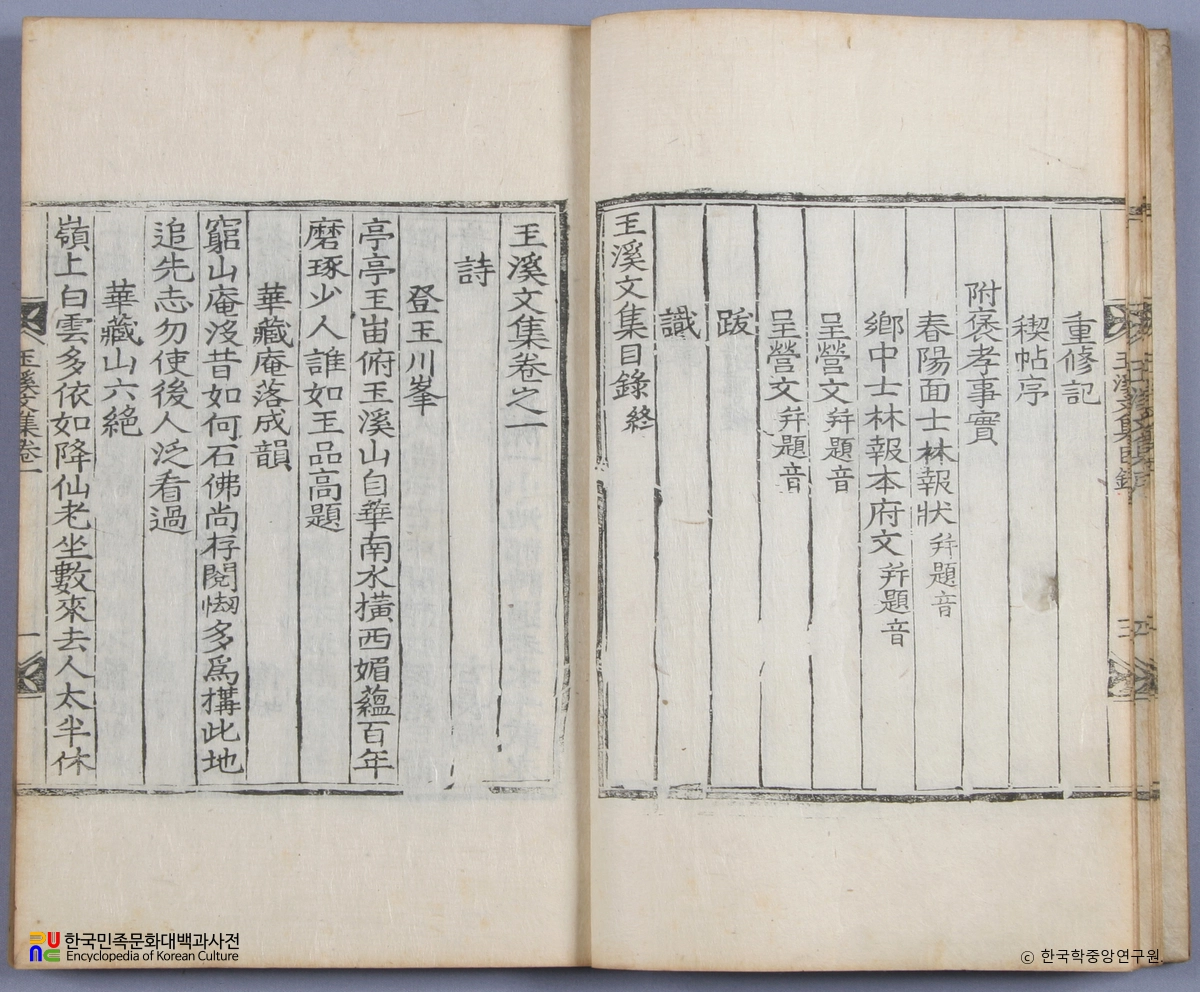 重修記
稧帖序
附褒孝事實
春陽面士林報狀 并題音
鄉中士林報本府文 并題音
呈營文 并題音
呈營文 并題音
跋
識
玉溪文集目錄 終
玉溪文集卷之一
詩
登玉川峯
亭亭玉出俯玉溪山自華南水橫西媚蘊百年
磨琢少人誰如玉品高題
華藏庵落成韻
窮山庵沒昔如何石佛尚存閱刼多爲構此地
追先志勿使後人泛看過
華藏山六絕
嶺上白雲多依如降仙老坐數來去人太半休
玉溪文集卷一
一
한국민족문화대백과사전
Encyclopedia of Korean Culture
ⓒ 한국학중앙연구원